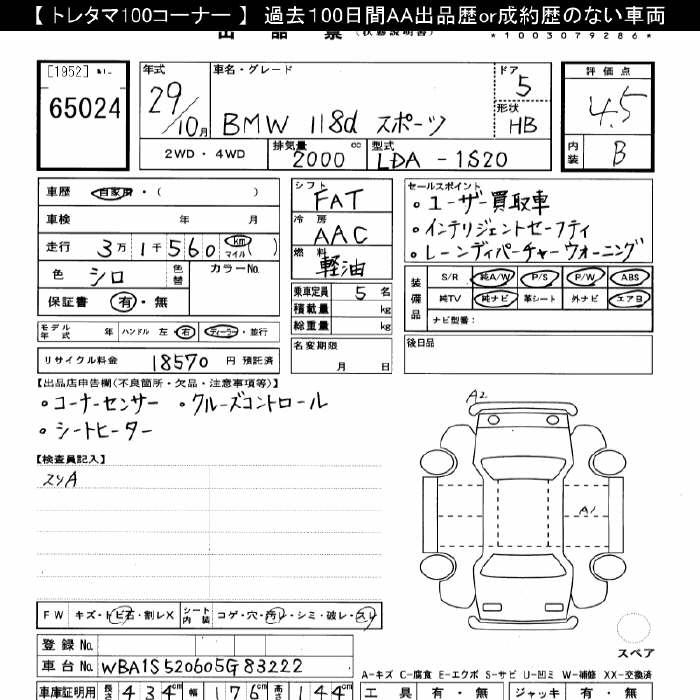 【 トレタマ100コーナー 】 過去100日間AA出品歴or成約歴のない車両
*1003079286*
[1952]
65024
年式
29/10月
車名・グレード
BMW 118d スポーツ
ドア
5
形状
HB
評価点
4.5
内装
B
2WD・4WD
排気量
2000 cc
型式
LDA-1S20
車歴 自家用・( )
車検 年 月
走行 3万1千560 km マイル )
色 シロ 色替
カラーNo.
保証書 有・無
モデル年式 年 ハンドル 左・右 ディーラー・並行
リサイクル料金 18570 円 預託済
シフト
FAT
冷房
AAC
燃料
軽油
乗車定員 5 名
積載量 kg
総重量 kg
名変期限
月 日
セールスポイント
・ユーザー買取車
・インテリジェントセーフティ
・レーンディパーチャーウォーニング
装備品
S/R 純A/W P/S P/W ABS
純TV 純ナビ 革シート 外ナビ エアB
ナビ型番:
後日品
【出品店申告欄(不良箇所・欠品・注意事項等)】
・コーナーセンサー ・クルーズコントロール
・シートヒーター
【検査員記入】
スリA
A2
A1
スペア
FW キズ・トビ石・割レX シート内装 コゲ・穴・汚レ・シミ・破レ・スレ
登録No.
車台No. WBA1S520605G83222
A-キズ C-腐食 E-エクボ S-サビ U-凹ミ W-補修 XX-交換済
車庫証明用 長さ 434cm 幅 176cm 高さ 144cm
工具 有・無 ジャッキ 有・無